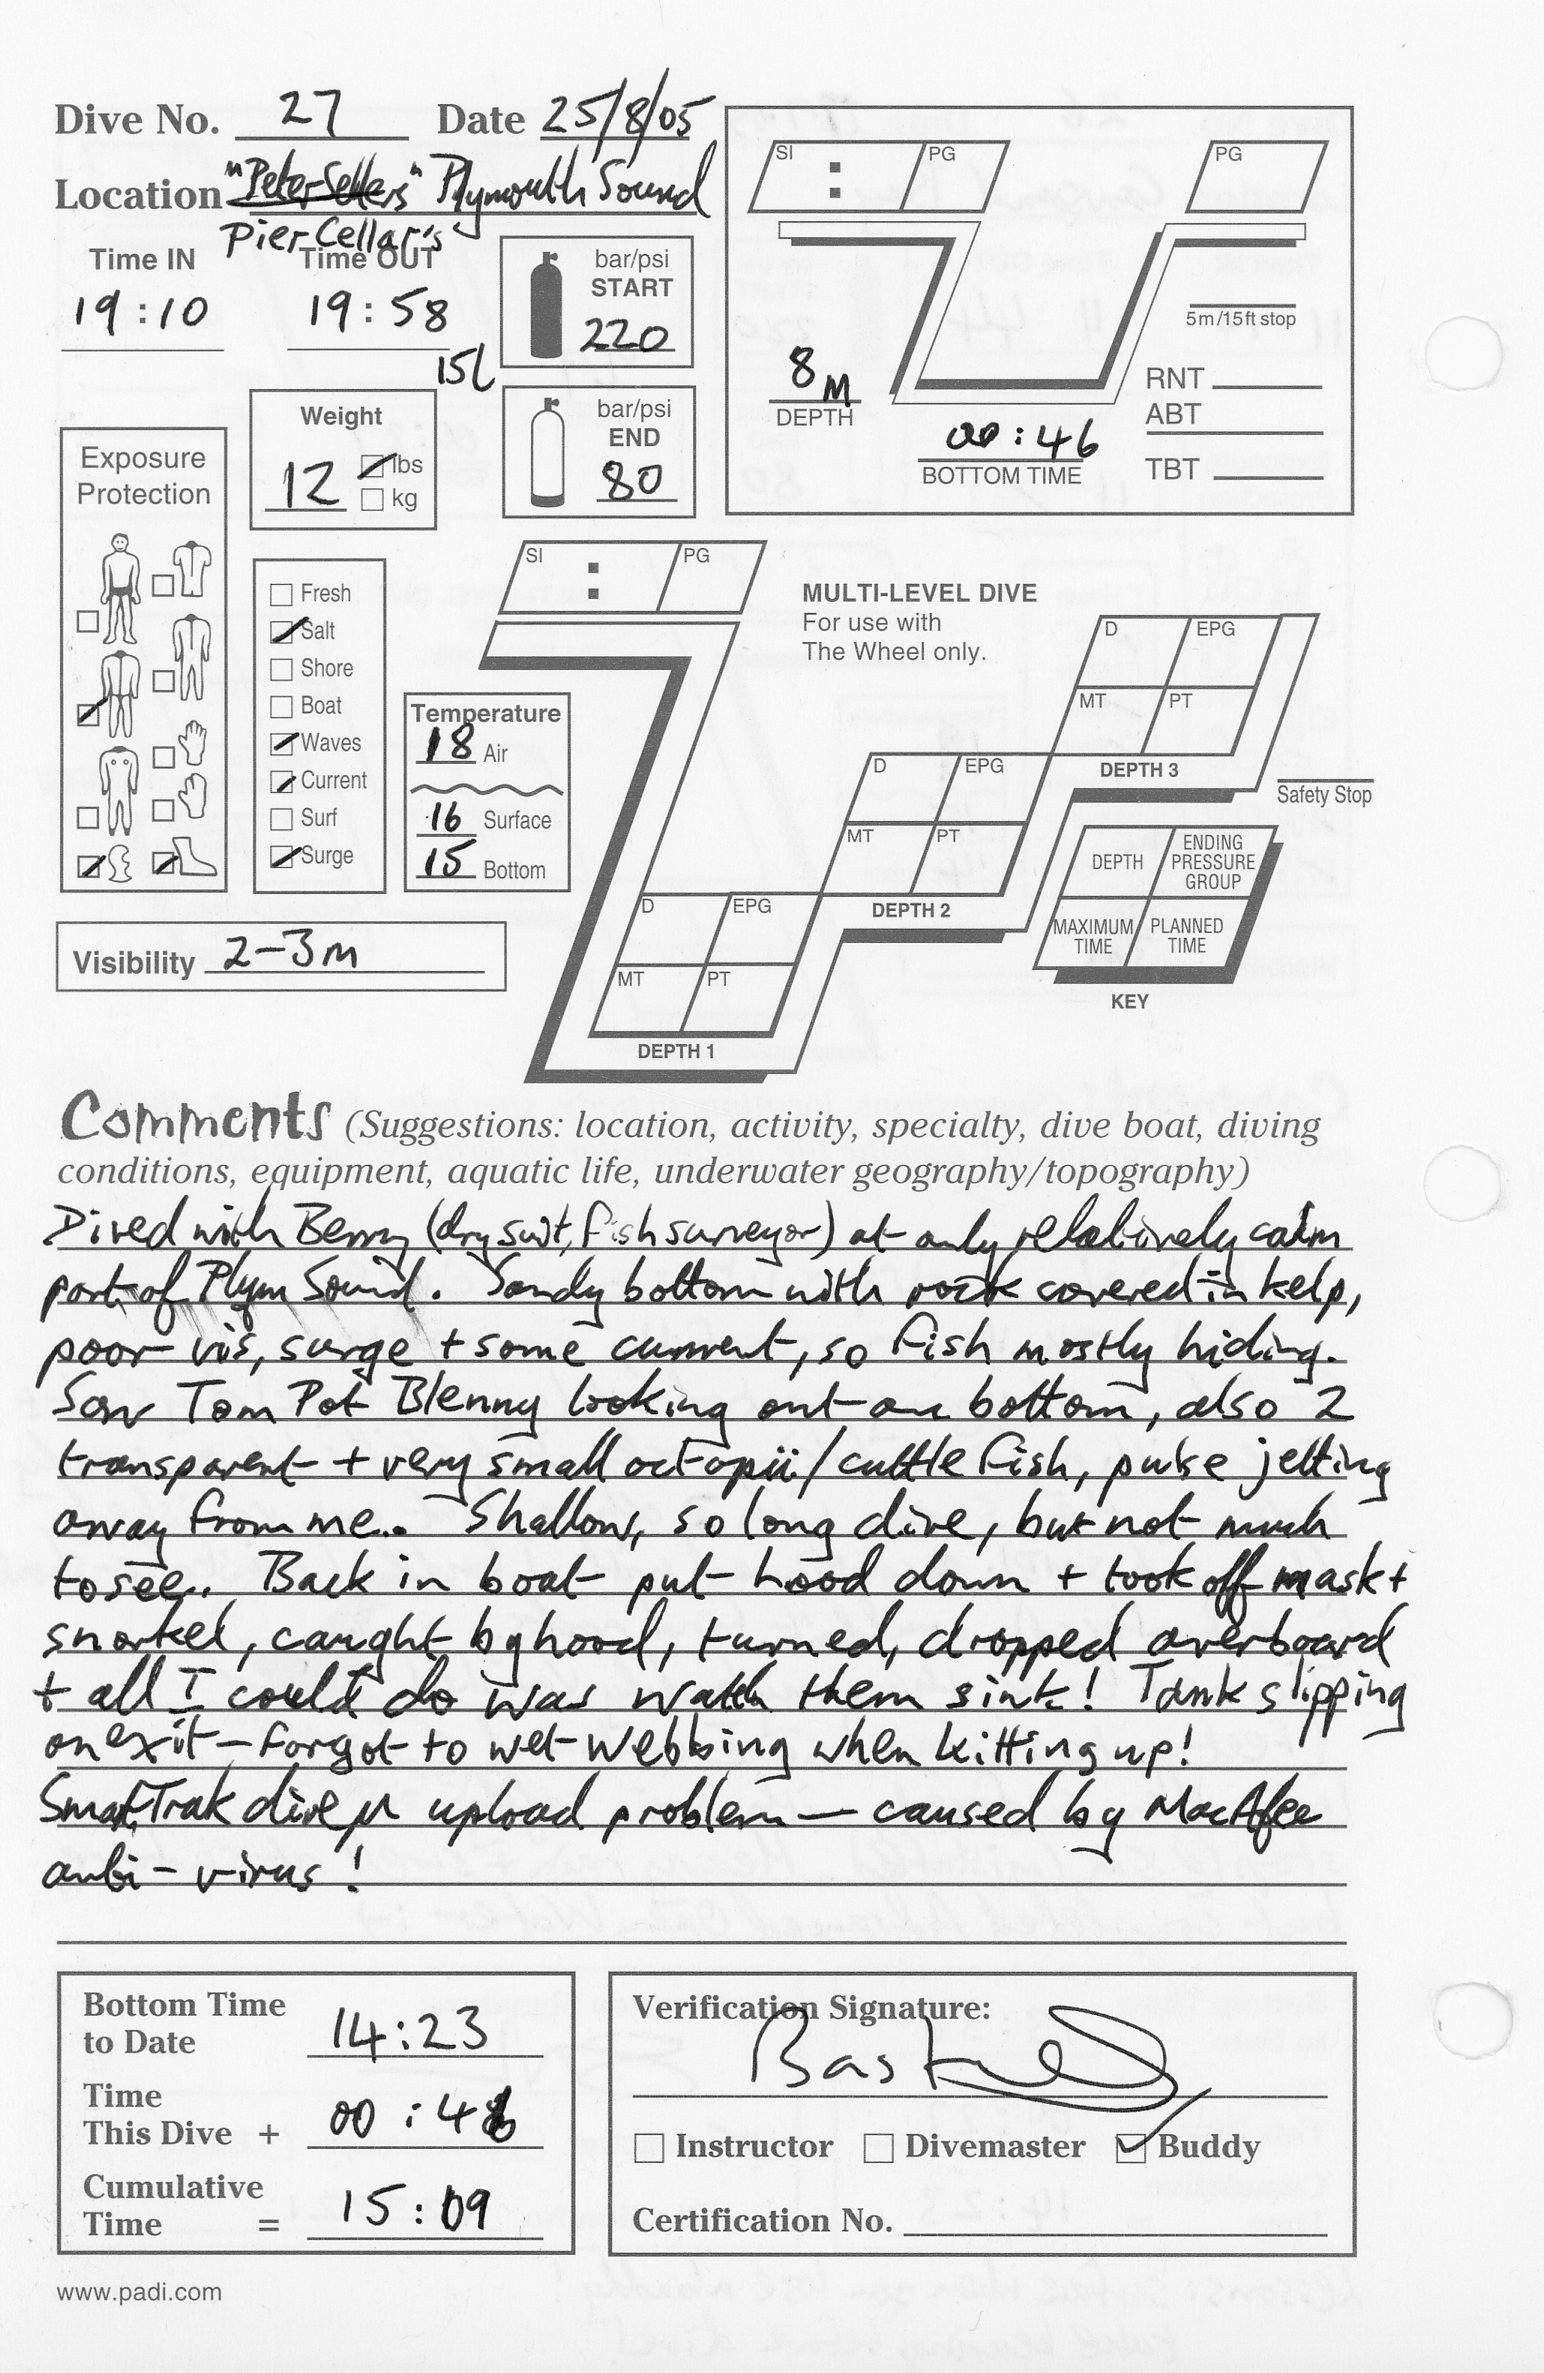 Dive No. 27 Date 25/8/05
Location "Peter Sellers" Plymouth Sound
Pier Cellar's
Time IN Time OUT
19:10 19:58
15l
bar/psi
START
220
bar/psi
END
80
Weight
12 lbs
kg
SI : PG
PG
5m/15ft stop
8M
DEPTH
00:46
BOTTOM TIME
RNT
ABT
TBT
Exposure
Protection
Fresh
Salt
Shore
Boat
Waves
Current
Surf
Surge
Temperature
18 Air
16 Surface
15 Bottom
Visibility 2-3m
SI : PG
MULTI-LEVEL DIVE
For use with
The Wheel only.
D EPG
MT PT
DEPTH 3
Safety Stop
D EPG
MT PT
DEPTH 2
D EPG
MT PT
DEPTH 1
DEPTH ENDING PRESSURE GROUP
MAXIMUM TIME PLANNED TIME
KEY
Comments (Suggestions: location, activity, specialty, dive boat, diving
conditions, equipment, aquatic life, underwater geography/topography)
Dived with (dry suit, fish surveyor) at only relatively calm
part of Plym Sound. Sandy bottom with rock covered in kelp,
poor vis, surge + some current, so fish mostly hiding.
Saw Tom Pot Blenny looking out on bottom, also 2
transparent + very small octopii/cuttle fish, pulse jetting
away from me.. Shallow, so long dive, but not much
to see.. Back in boat put hood down + took off mask +
snorkel, caught by hood, turned, dropped overboard
+ all I could do was watch them sink! Tank slipping
on exit – forgot to wet webbing when kitting up!
SmarTrak dive µ upload problem – caused by MacAfee
anti-virus!
Bottom Time
to Date 14:23
Time
This Dive + 00:46
Cumulative
Time = 15:09
Verification Signature:
Instructor Divemaster Buddy
Certification No.
www.padi.com